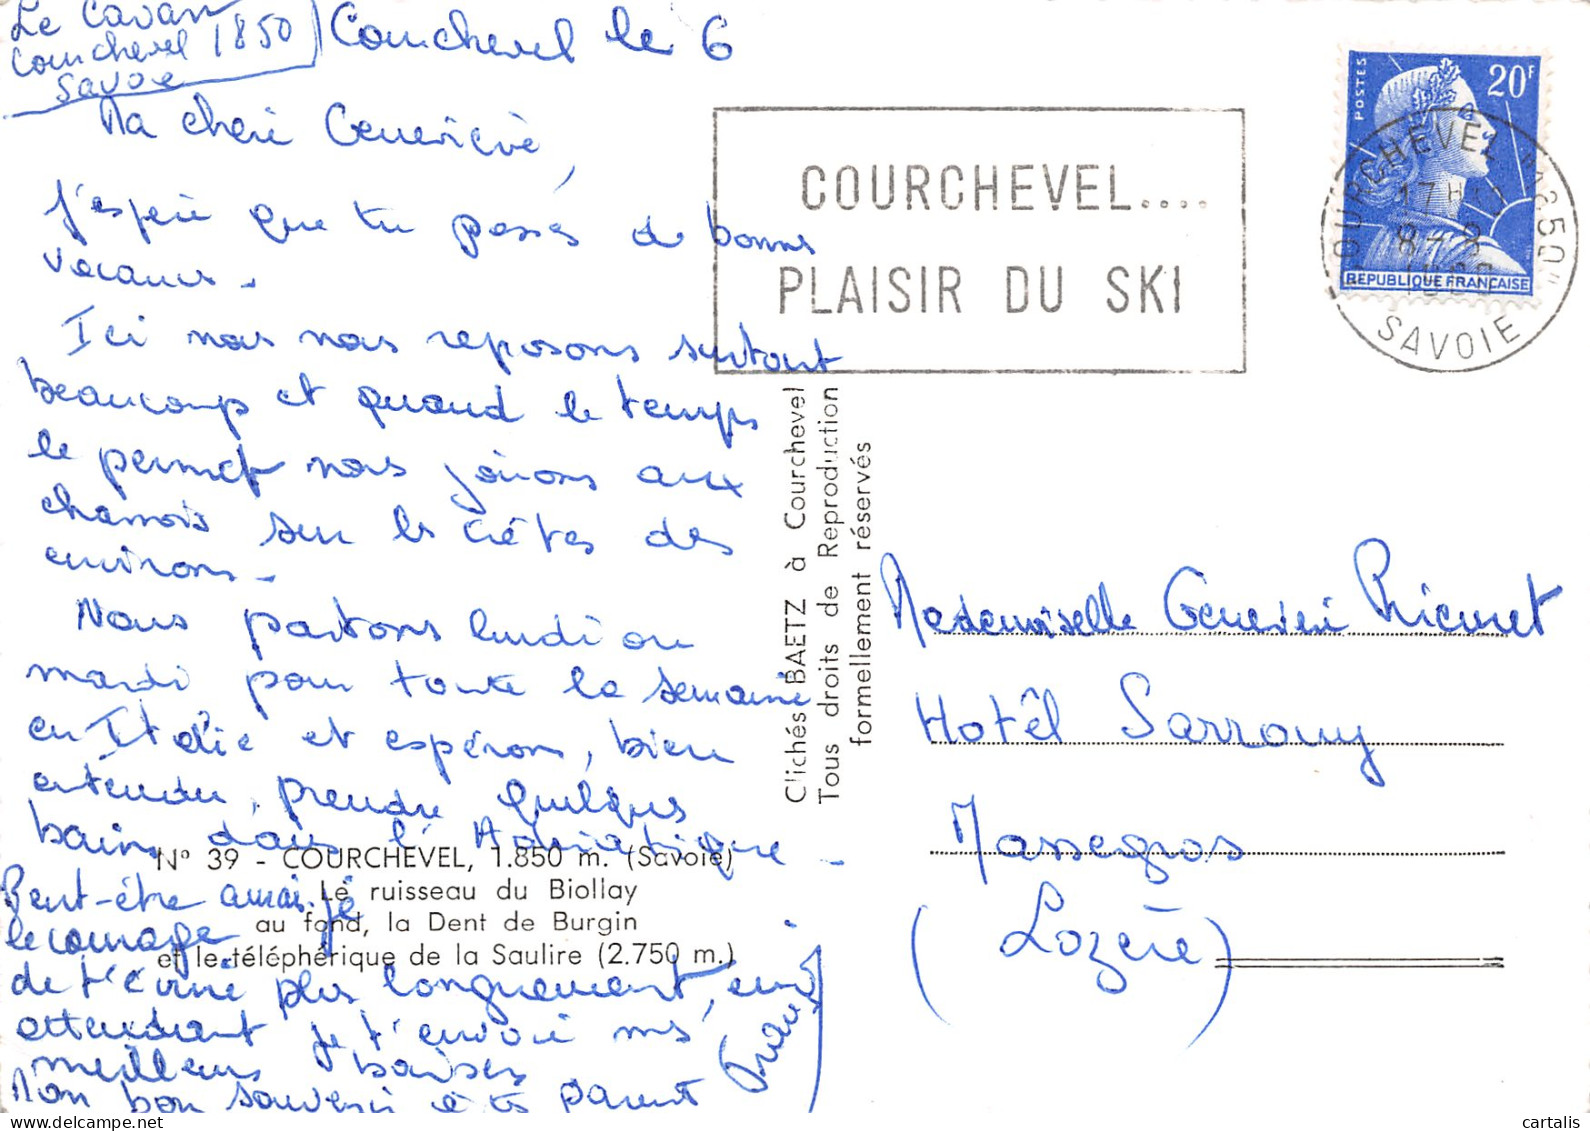 Le Cavan
Courchevel 1850
Savoie
Courchevel le 6
Ma chère Geneviève,
J'espère que tu passes de bonnes
vacances.
Ici nous nous reposons surtout
beaucoup et quand le temps
le permet nous jouons aux
chamois sur les crêtes des
environs.
Nous partons lundi ou
mardi pour toute la semaine
en Italie et espérons, bien
entendu, prendre quelques
bains dans l'Adriatique.
Peut-être aurai-je
le courage
de t'écrire plus longuement, en
attendant je t'envoie mes
meilleurs baisers
Mon bon souvenir à tes parents
N° 39 - COURCHEVEL, 1.850 m. (Savoie)
Le ruisseau du Biollay
au fond, la Dent de Burgin
et le téléphérique de la Saulire (2.750 m.)
Clichés BAETZ à Courchevel
Tous droits de Reproduction
formellement réservés
COURCHEVEL....
PLAISIR DU SKI
POSTES
20F
REPUBLIQUE FRANÇAISE
COURCHEVEL "1850"
17H
8 - 8
SAVOIE
Mademoiselle Geneviève
Hotêl Sarrouy
Massegros
(Lozère)
cartalis